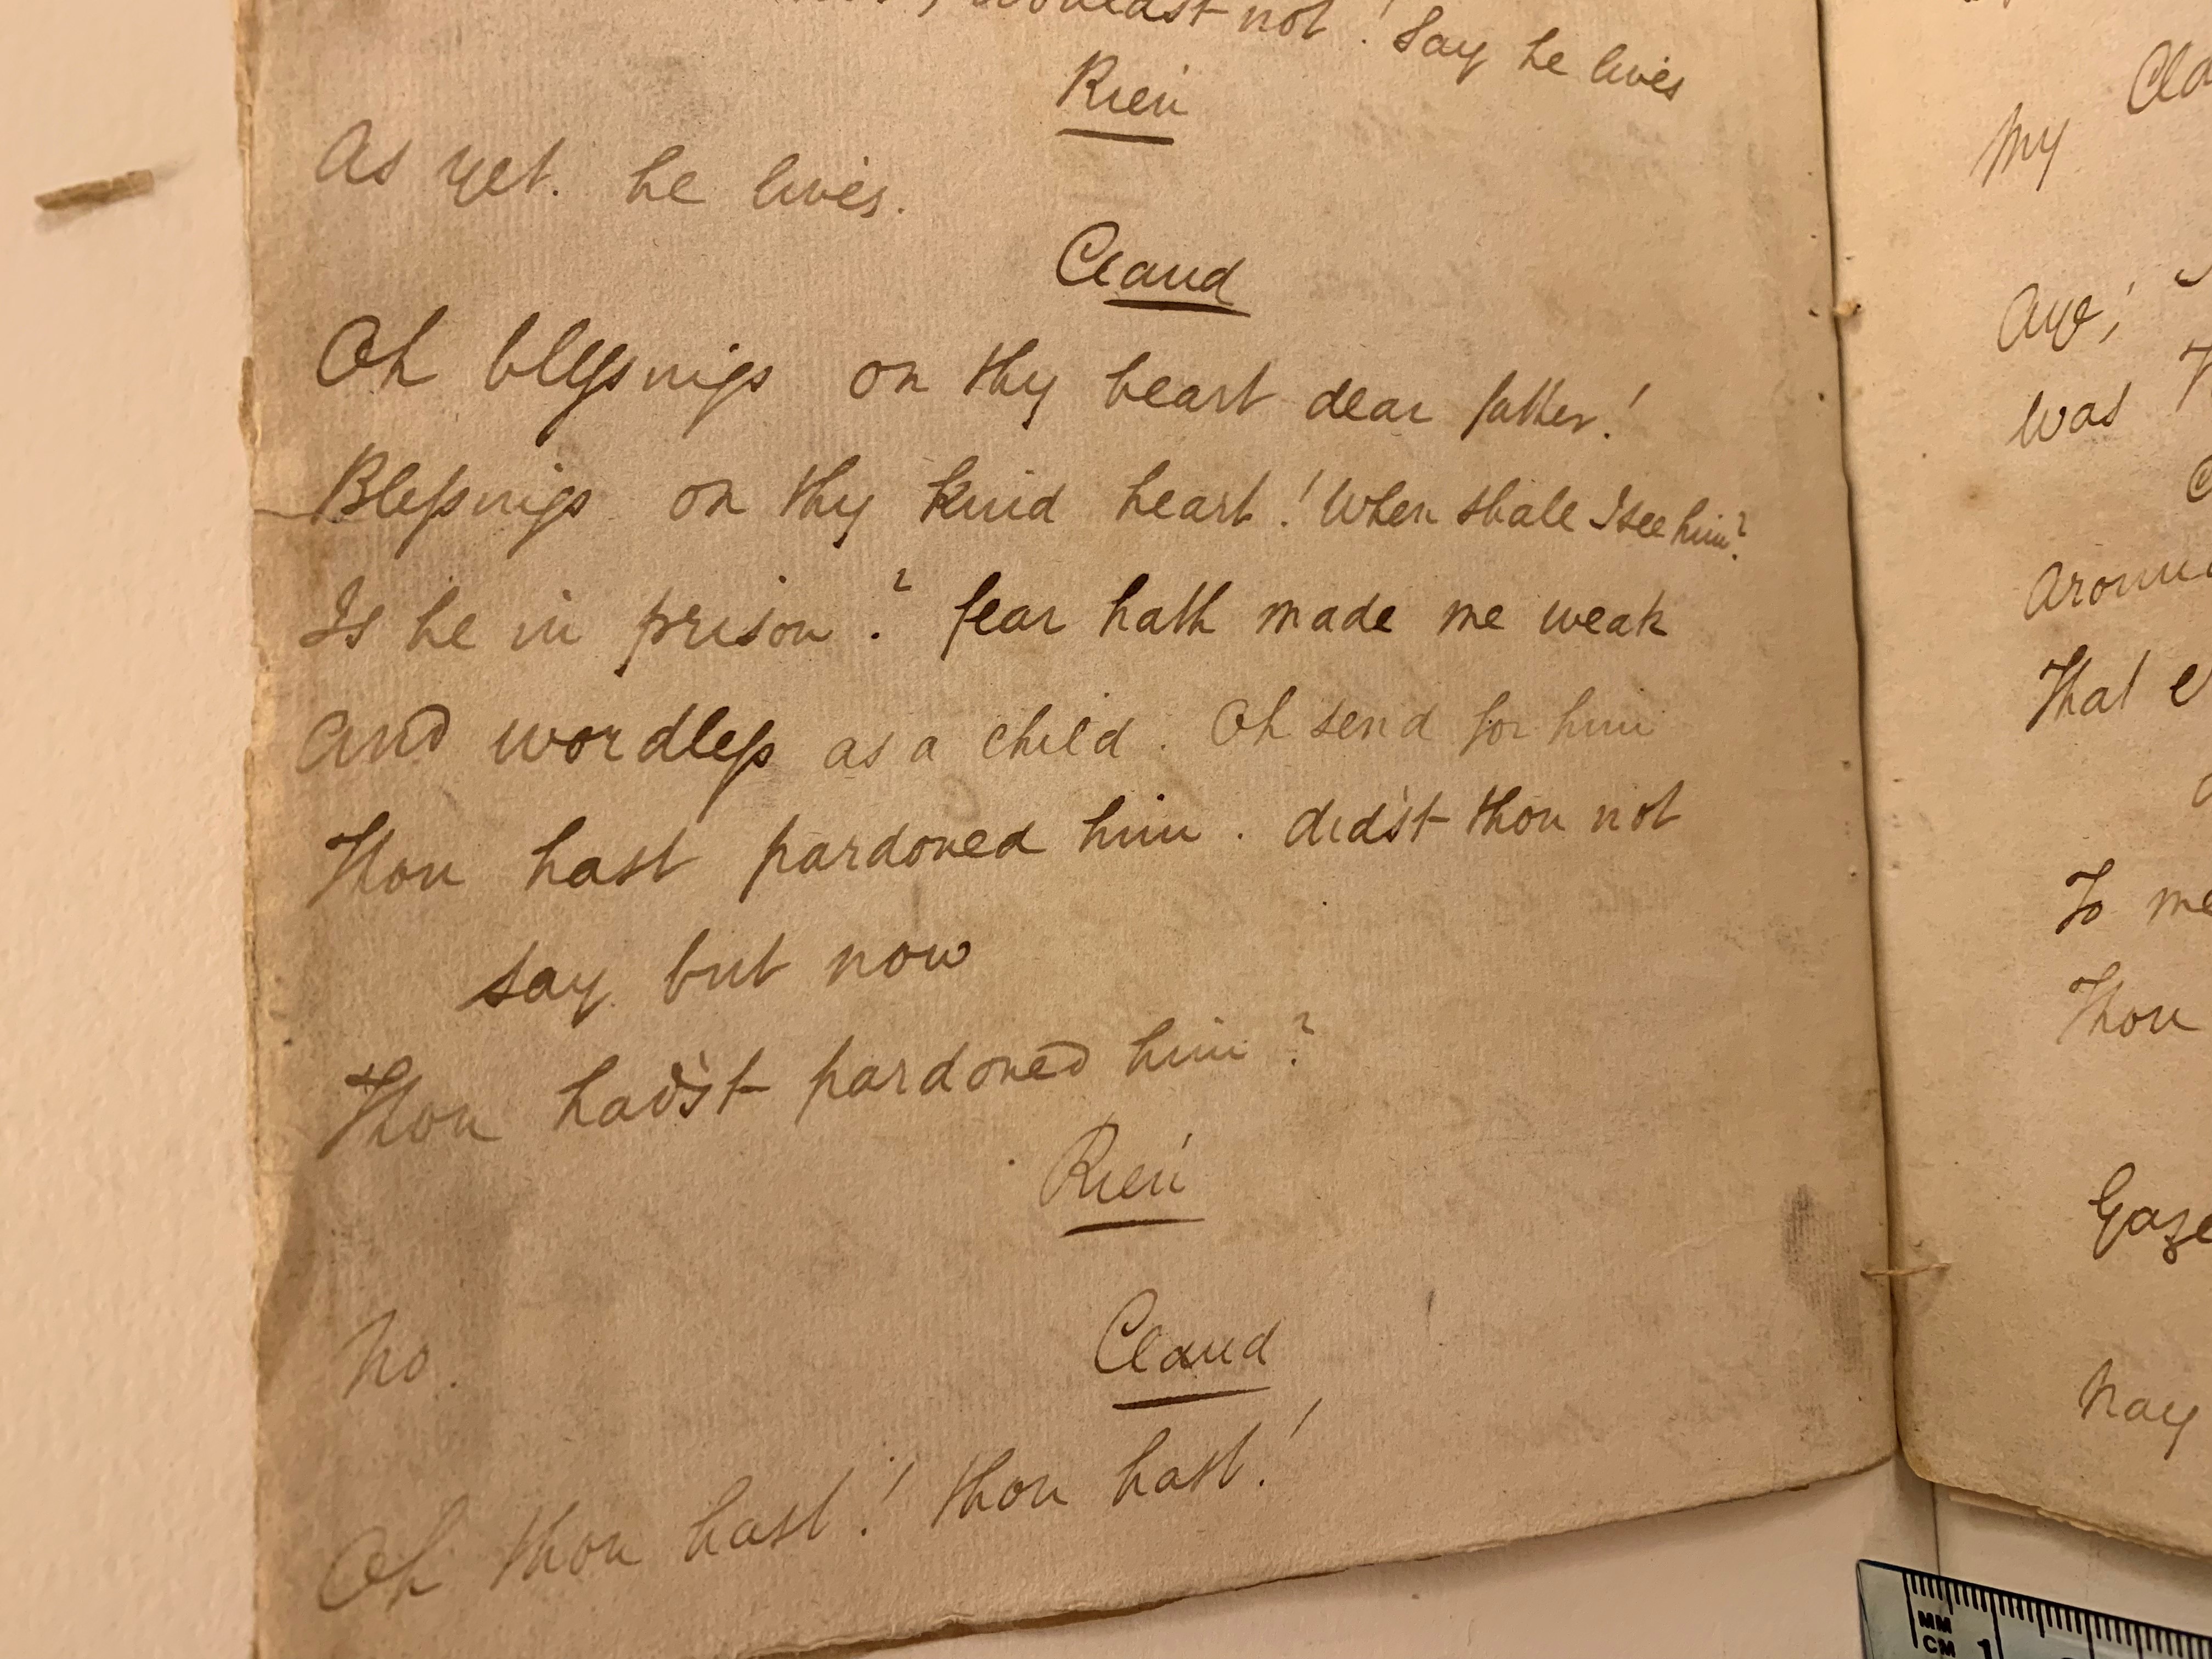 wouldst not! Say he lives
Rien
As yet. he lives.
Claud
Oh blessings on thy heart dear father!
Blessings on thy kind heart! When shall I see him?
Is he in prison? fear hath made me weak
And wordless as a child. Oh send for him
Thou hast pardoned him. did'st thou not
say but now
Thou had'st pardoned him?
Rien
No.
Claud
Oh thou hast! thou hast!
My
Aye;
was
That
To me
Thou
Gaze
Nay
MM
CM 1